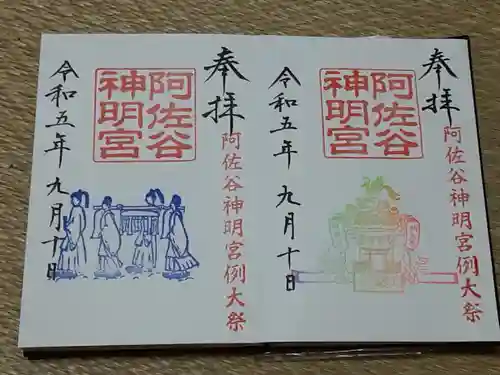 奉拝
阿佐谷神明宮例大祭
阿佐谷
神明宮
令和五年九月十日
奉拝
阿佐谷神明宮例大祭
阿佐谷
神明宮
令和五年九月十日